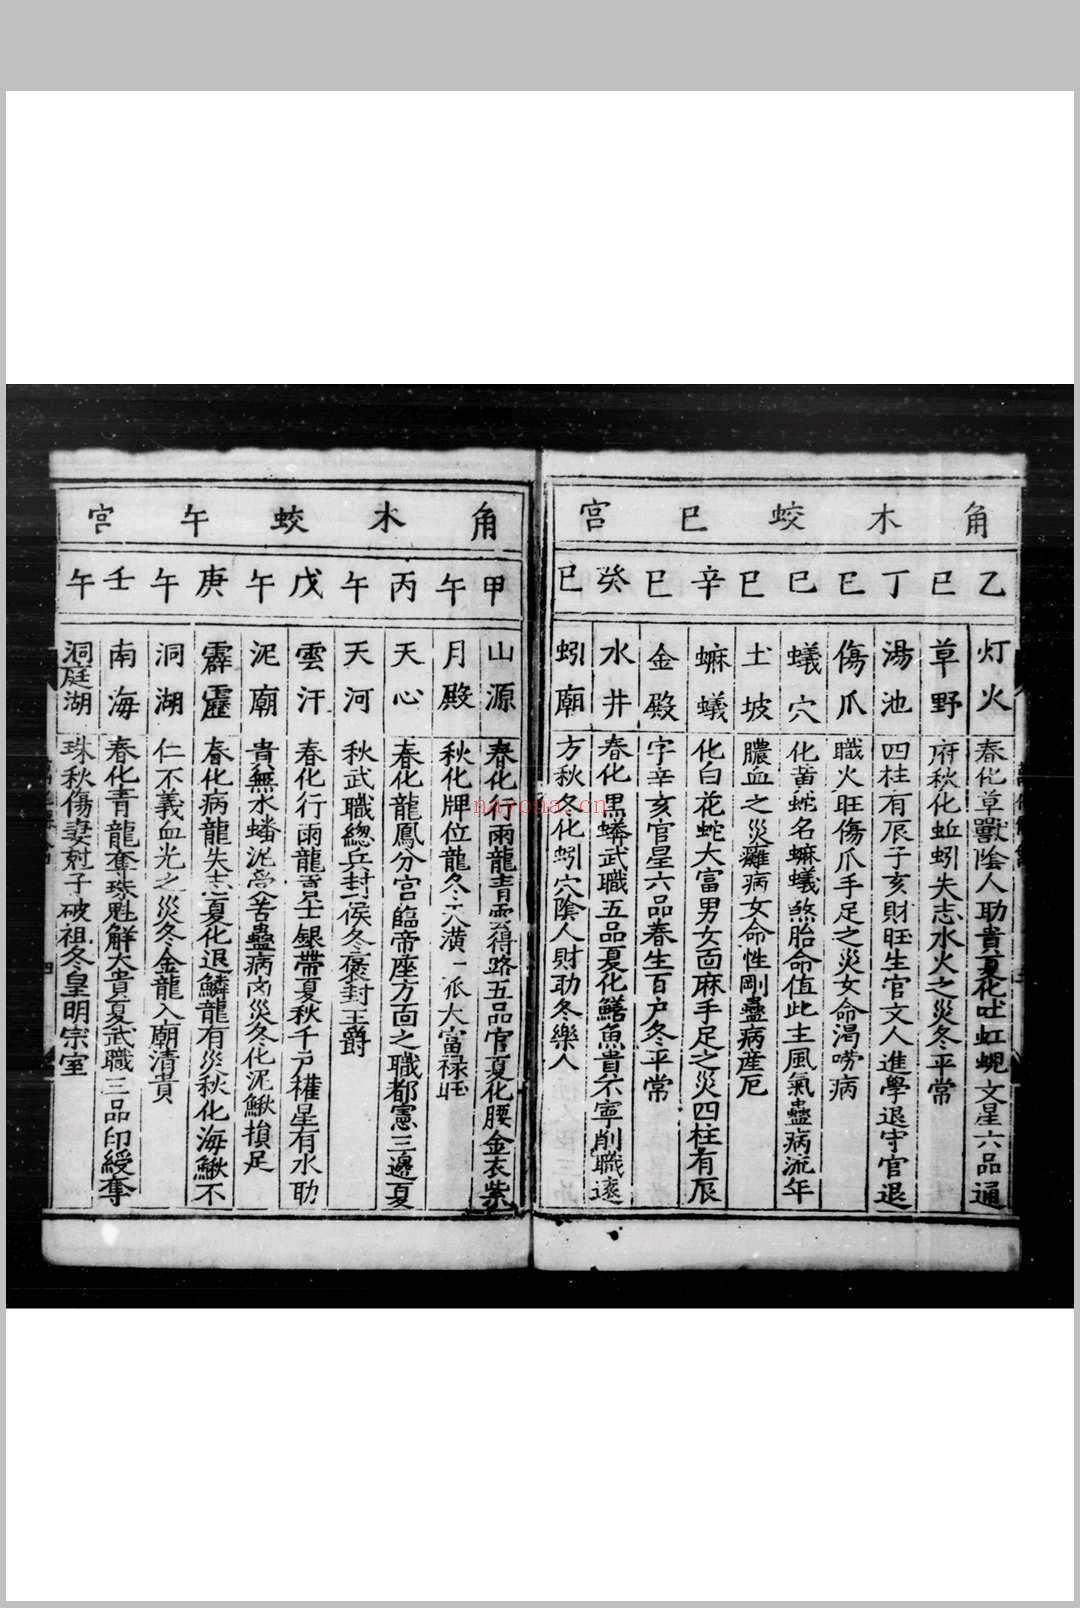 角木蛟巳宮
乙巳丁巳辛巳癸巳
灯火 春化草獸陰人助貴夏化吐虹蜺文星六品通
草野 府秋化蚯蚓失志水火之災冬平常
湯池 四柱有辰子亥財旺生官文人進學退守官退
傷爪 職火旺傷爪手足之災女命渴嘮病
蟻穴 化黃蛇名蟻煞胎命值此主風氣蠱病流年
土坡 膿血之災癱病女命性剛蠱病產厄
蟻 化白花蛇大富男女面麻手足之災四柱有辰
金殿 字辛亥官星六品春生百户冬平常
水井 春化黑蟒武職五品夏化鱔魚貴不寧削職遠
蚓廟 方秋冬化蚓穴陰人財助冬樂人
角木蛟午宮
甲午丙午戊午庚午壬午
山源 春化行雨龍青雲得路五品官夏化腰金衣紫
月殿 秋化牌位龍冬天潢一派大富禄旺
天心 春化龍鳳分宮臨帝座方面之職都憲三邊夏
天河 秋武職總兵封侯冬褒封王爵
雲汗 春化行雨龍銀帶夏秋千户權星有水助
泥廟 貴無水蟠泥受苦蠱病災冬化泥鰍損足
霹靂 春化病龍失志夏化退鱗龍有災秋化海鰍不
洞湖 仁不義血光之災冬金龍入廟清貴
南海 春化青龍奪珠魁解大貴夏武職三品印綬奪
洞庭湖 珠秋傷妻尅子破祖冬皇明宗室
nayona.cn